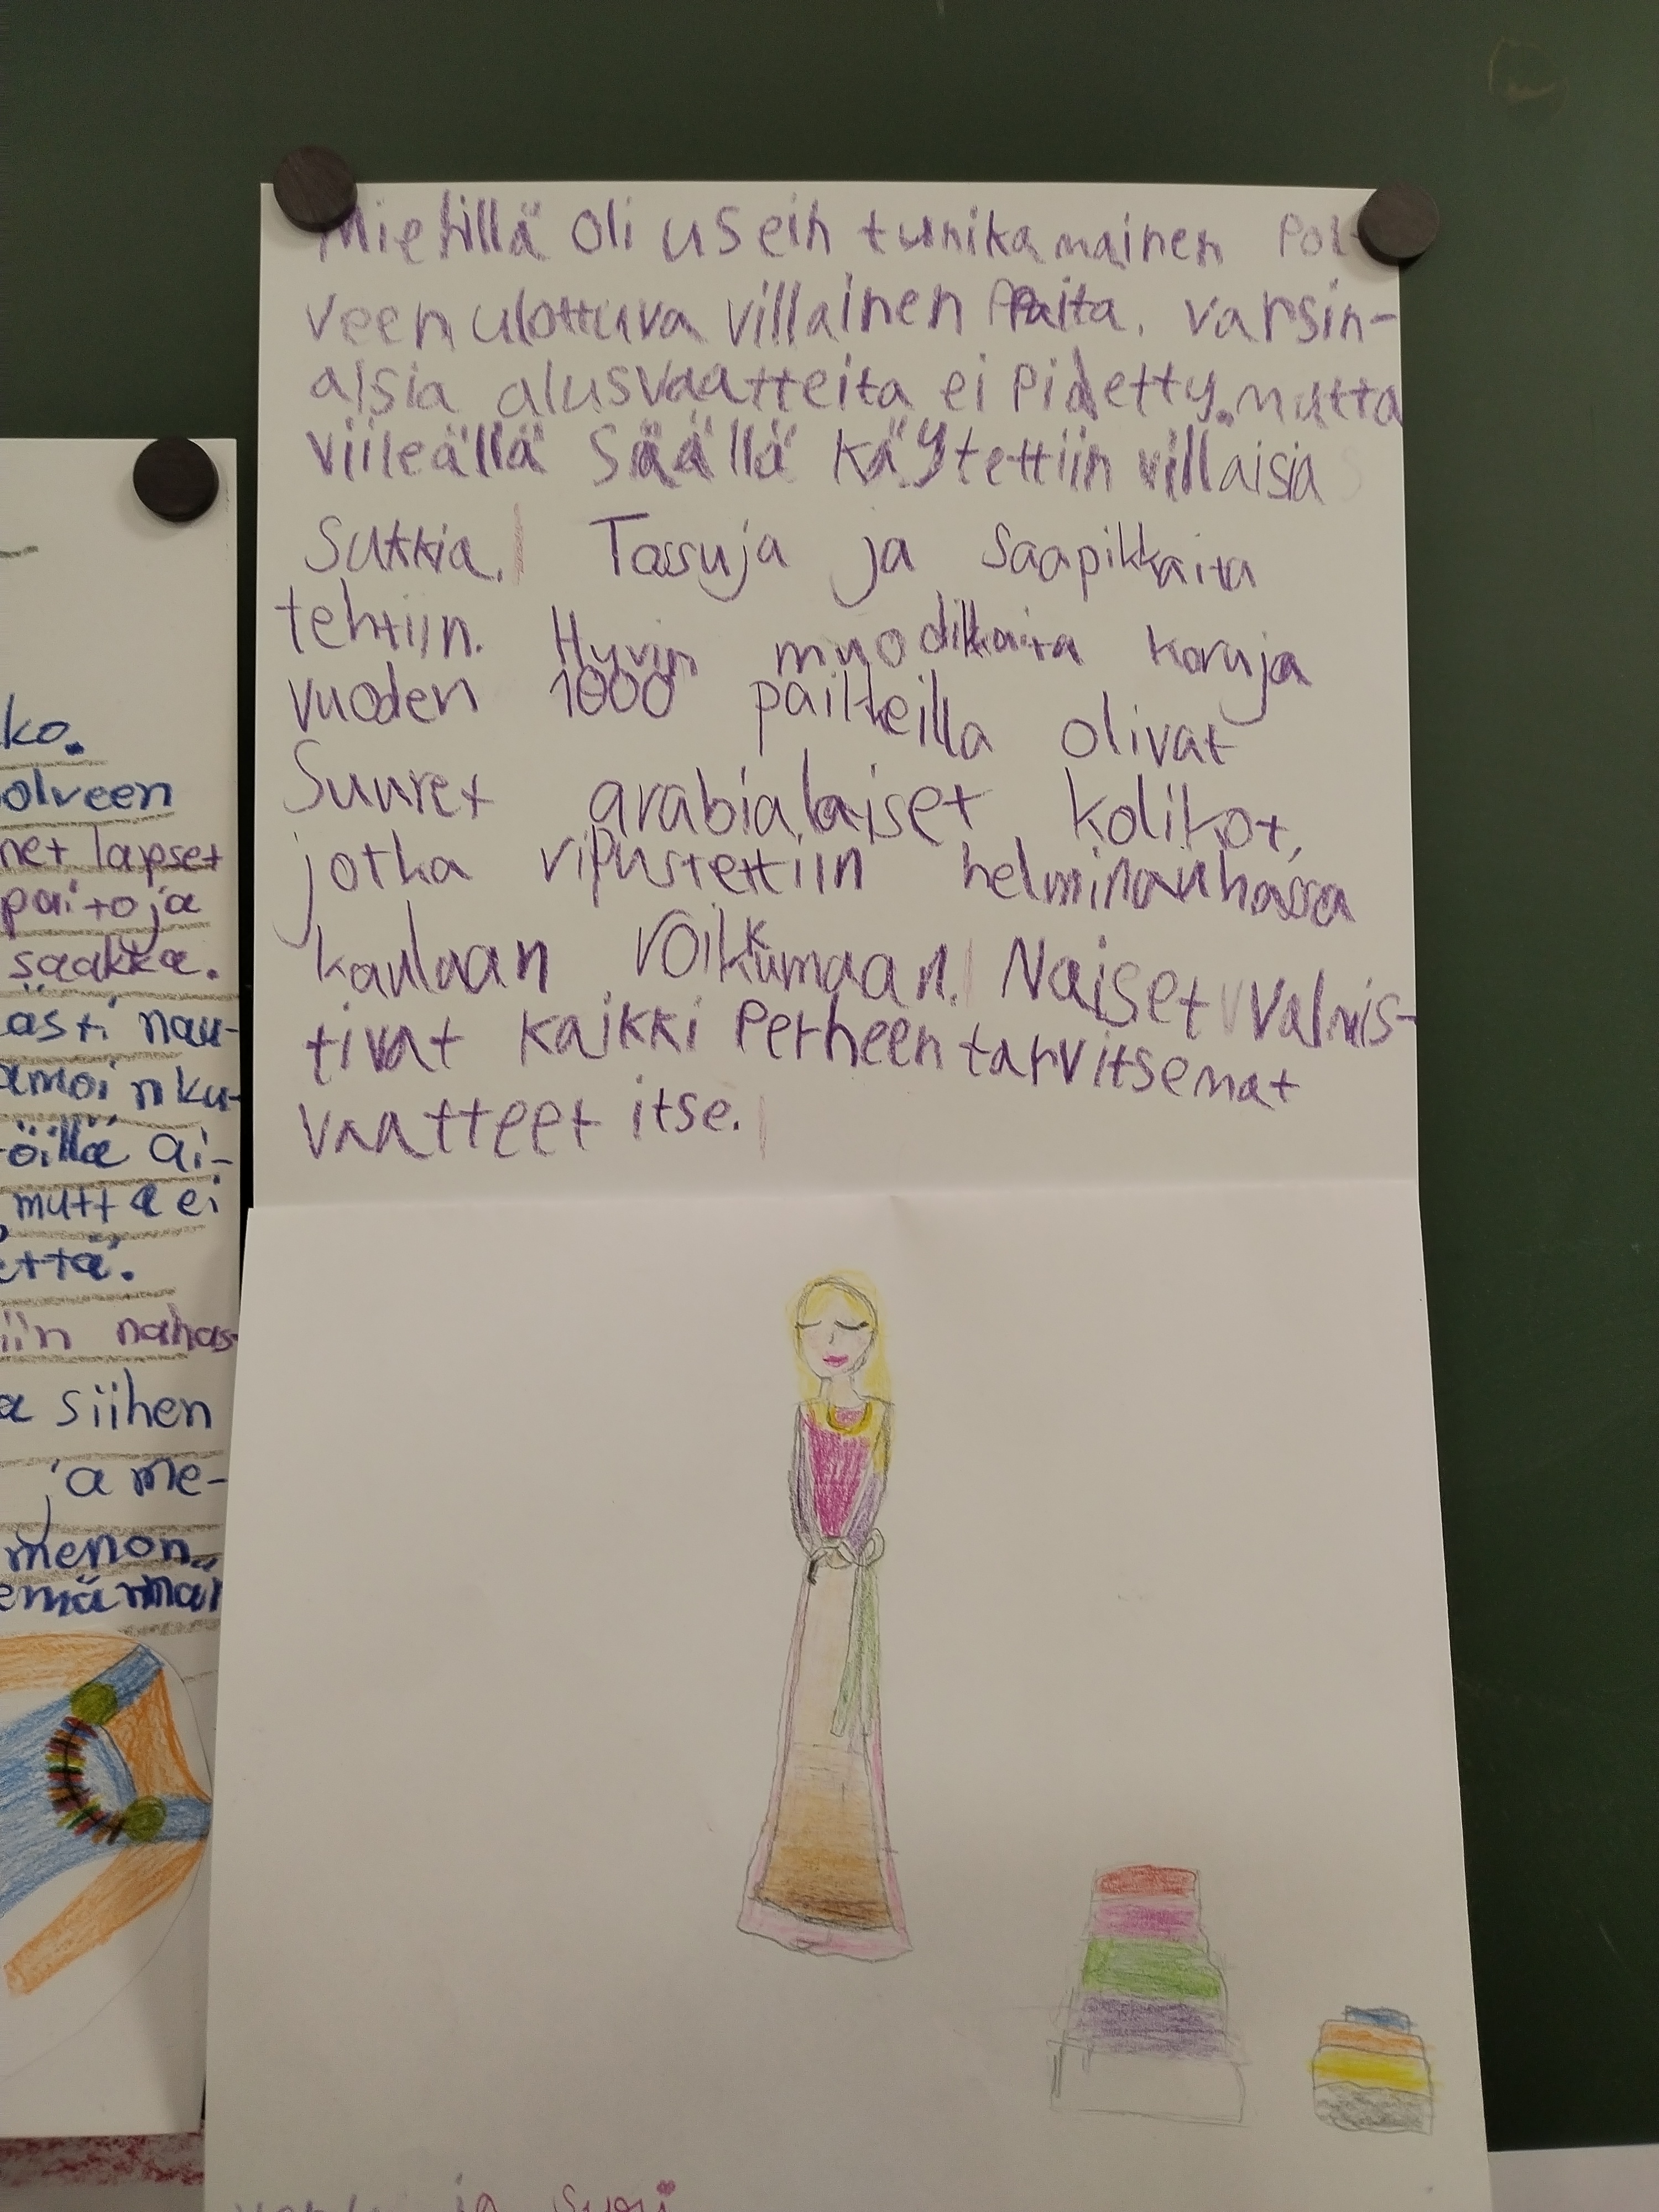 Miehillä oli usein tunikamainen pol-
veen ulottuva villainen Paita. varsin-
aisia alusvaatteita ei Pidetty. mutta
viileällä Säällä käytettiin villaisia
Sukkia. Tossuja ja saapikkaita
tehtiin. Hyvin muodikkaita koruja
vuoden 1000 päilteilla olivat
Suuret arabialaiset kolikot,
jotka ripustettiin helminauhassa
kaulaan roikkumaan. Naiset valmis-
tivat kaikki Perheen tarvitsemat
vaatteet itse.
ko.
olveen
net lapset
paitoja
saakka.
ästi nau-
amoin ku-
öillä ai-
mutta ei
että.
iin nahas-
a siihen
ja me-
menon
ja suvi